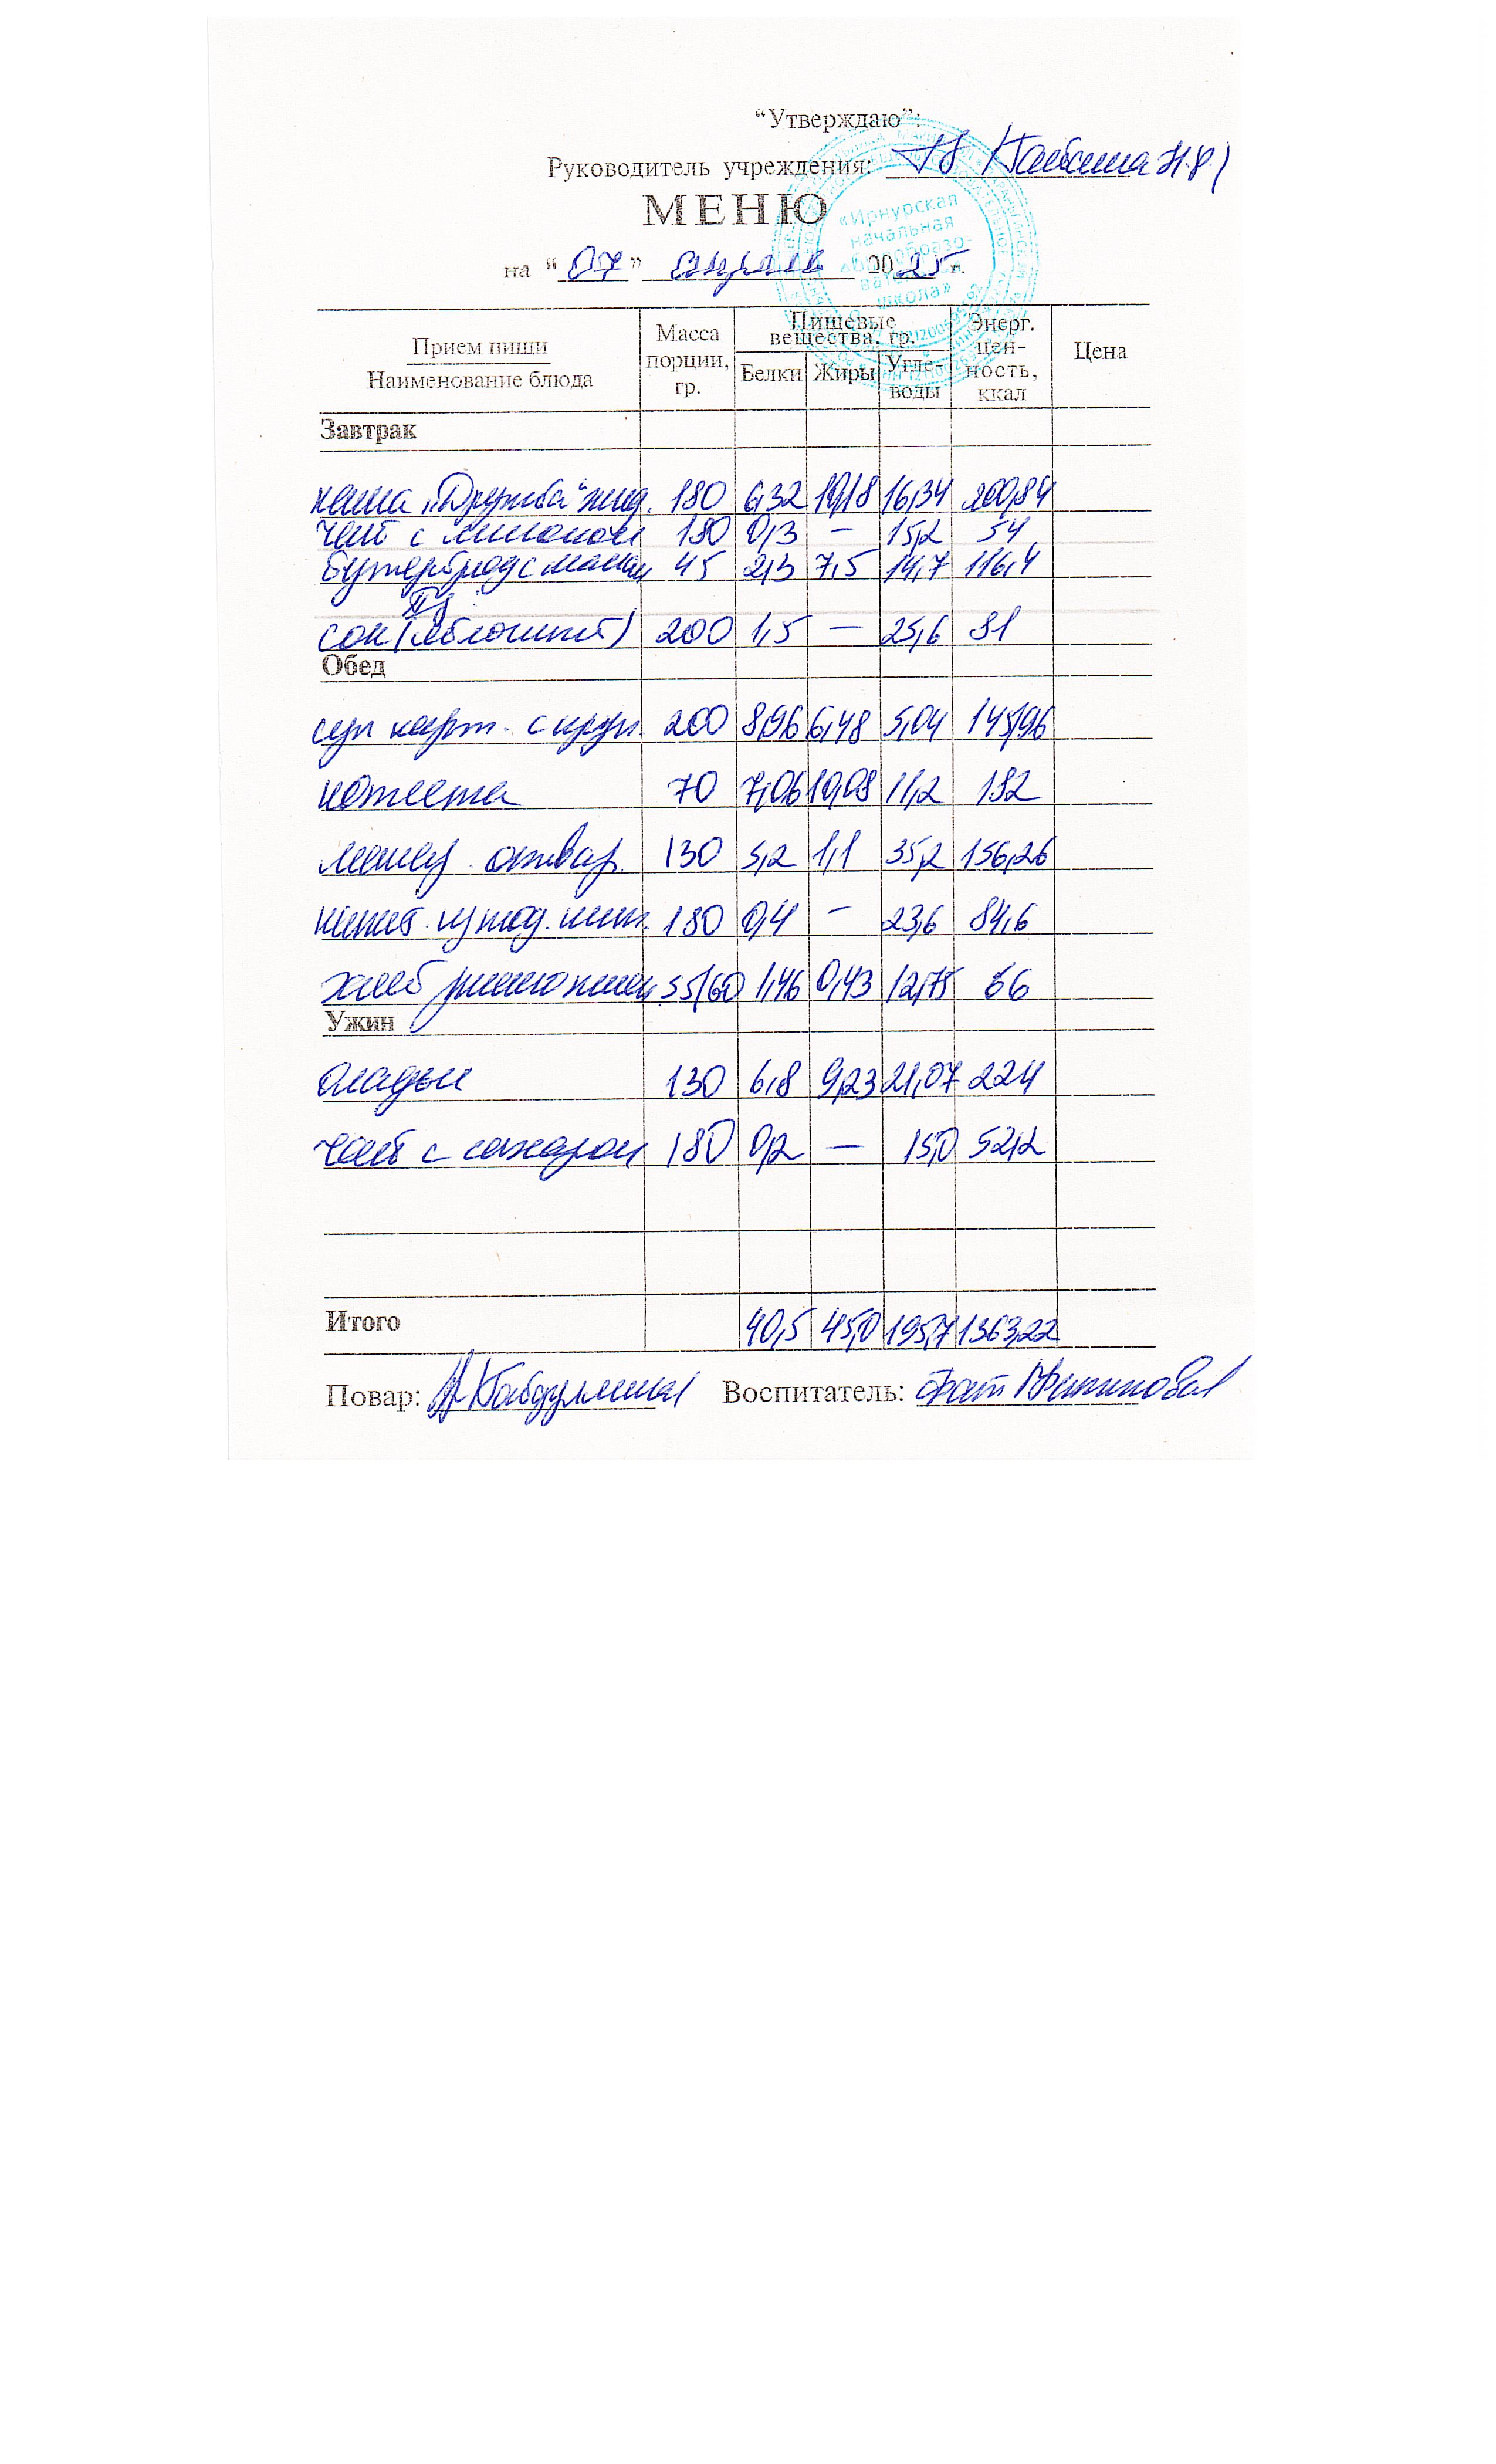 “Утверждаю”:
Руководитель учреждения:
МЕНЮ
на “07” апреля 2025 г.
«Ирнурская
начальная
школа»
Прием пищи
Наименование блюда
Масса порции, гр.
Пищевые вещества, гр.
Белки Жиры Угле-воды
Энерг. цен-ность, ккал
Цена
Завтрак
каша „Дружба“ жид. 180 6,32 10,18 16,34 200,84
чай с лимоном 180 0,3 — 15,2 54
Бутерброд с маслом 45 2,3 7,5 14,7 116,4
сок (яблочный) 200 1,5 — 25,6 81
Обед
суп карт. с круп. 200 8,96 6,48 5,04 145,96
котлета 70 7,06 10,08 11,2 182
отвар. 130 5,2 1,1 35,2 156,26
180 0,4 — 23,6 84,6
хлеб 1,46 0,43 12,75 66
Ужин
оладьи 130 6,8 9,23 21,07 224
чай с сахаром 180 0,2 — 15,0 52,2
Итого 40,5 45,0 195,7 1363,22
Повар: Воспитатель: